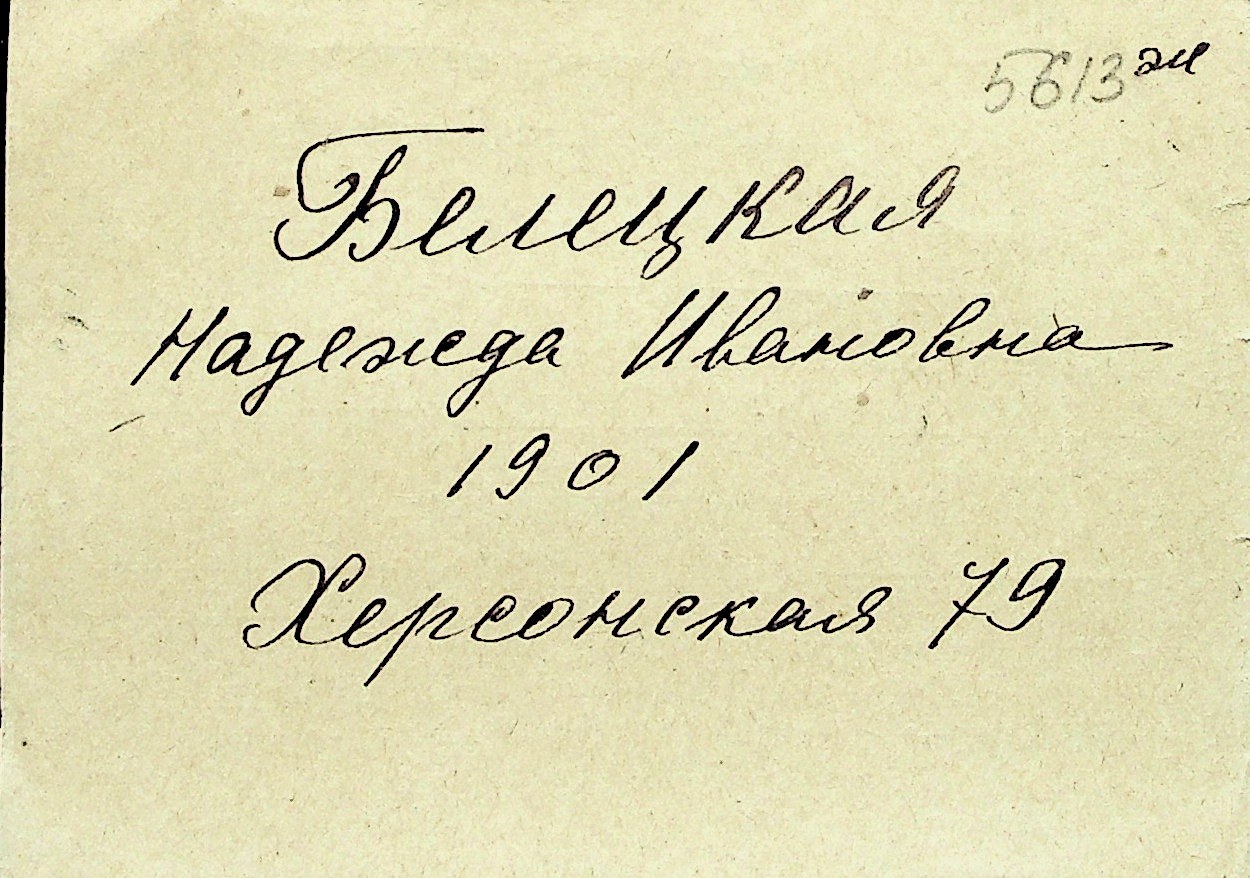 5613 эл
Белецкая
Надежда Ивановна
1901
Херсонская 79